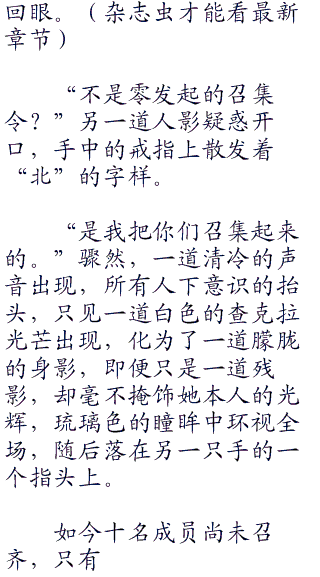 回眼。（杂志虫才能看最新
章节）
“不是零发起的召集
令？”另一道人影疑惑开
口，手中的戒指上散发着
“北”的字样。
“是我把你们召集起来
的。”骤然，一道清冷的声
音出现，所有人下意识的抬
头，只见一道白色的查克拉
光芒出现，化为了一道朦胧
的身影，即便只是一道残
影，却毫不掩饰她本人的光
辉，琉璃色的瞳眸中环视全
场，随后落在另一只手的一
个指头上。
如今十名成员尚未召
齐，只有